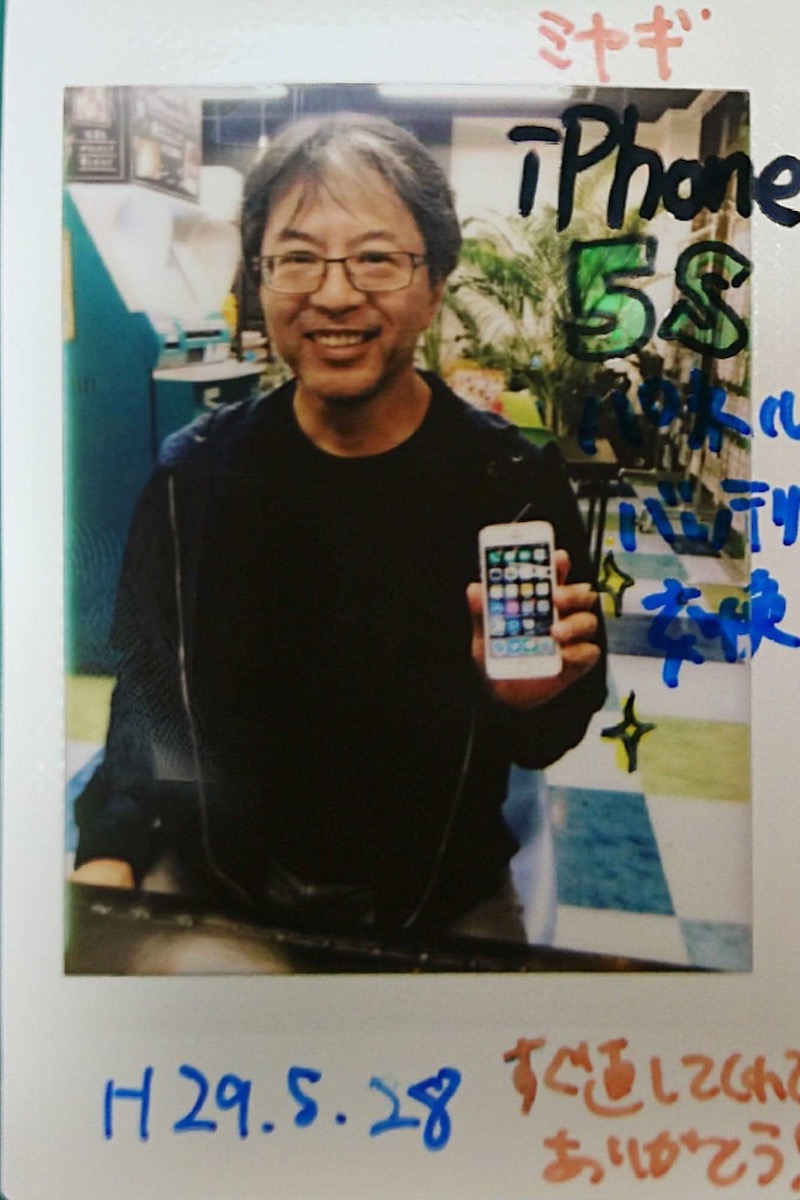 ミヤギ
iPhone
5S
パネル
バッテリ
交換
H29.5.28
すぐ直してくれて
ありがとう!